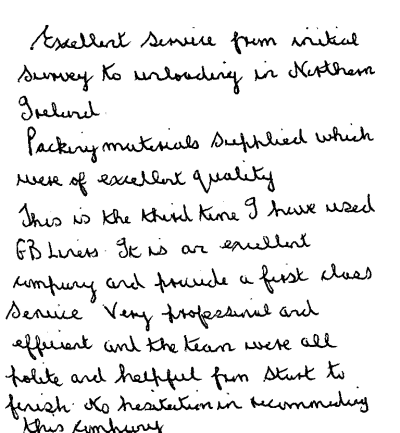 Excellent service from initial
survey to unloading in Northern
Ireland.
Packing materials supplied which
were of excellent quality
This is the third time I have used
GB Liners. It is an excellent
company and provide a first class
service Very professional and
efficient and the team were all
polite and helpful from start to
finish. No hesitation in recommending
this company